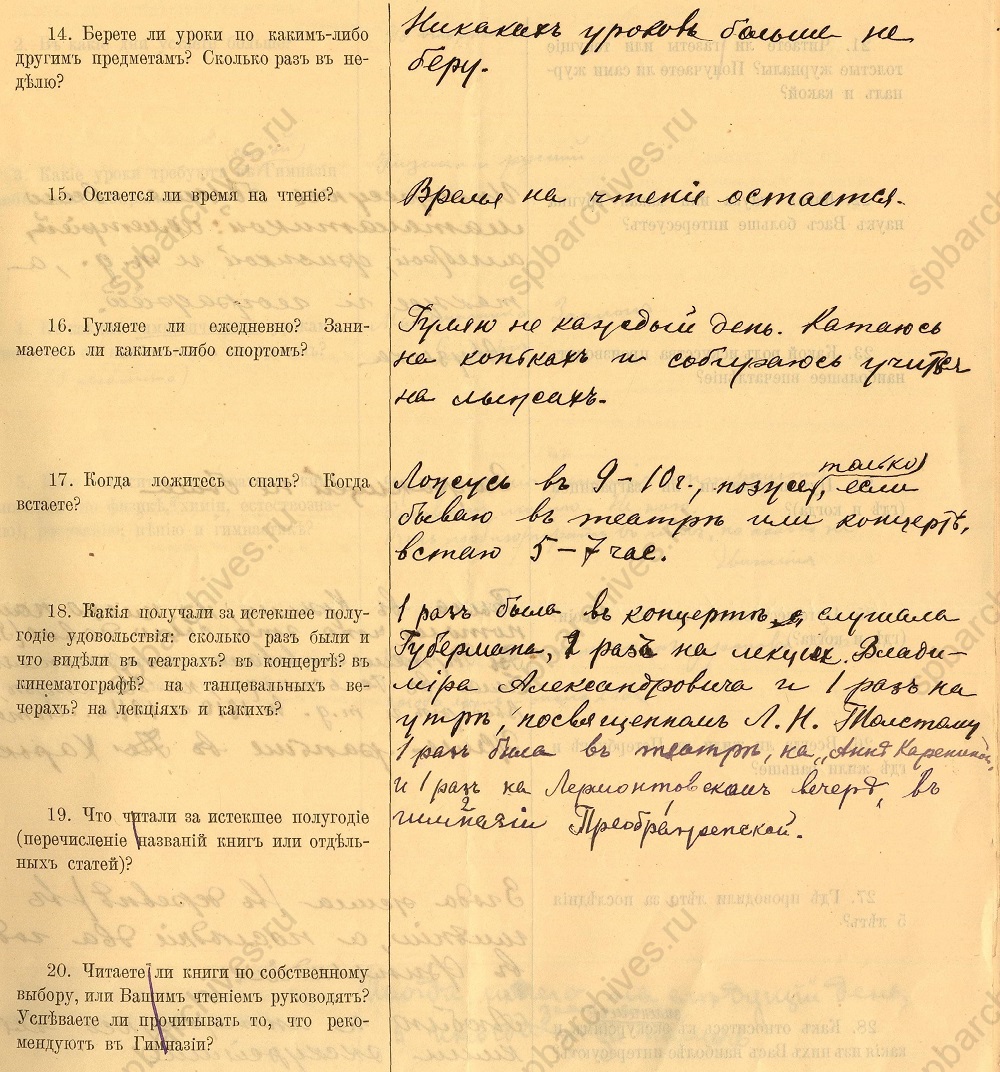 14. Берете ли уроки по какимъ-либо
другимъ предметамъ? Сколько разъ въ не-
дѣлю?
Никакихъ уроковъ больше не
беру.
15. Остается ли время на чтеніе?
Время на чтеніе остается.
16. Гуляете ли ежедневно? Зани-
маетесь ли какимъ-либо спортомъ?
Гуляю не каждый день. Катаюсь
на конькахъ и собираюсь учиться
на лыжахъ.
17. Когда ложитесь спать? Когда
встаете?
Ложусь въ 9–10 ч., позже, только если
бываю въ театрѣ или концертѣ,
встаю 5–7 час.
18. Какія получали за истекшее полу-
годіе удовольствія: сколько разъ были и
что видѣли въ театрахъ? въ концертѣ? въ
кинематографѣ? на танцевальныхъ ве-
черахъ? на лекціяхъ и какихъ?
1 разъ была въ концертѣ, слушала
Губермана, 1 разъ на лекціи Влади-
міра Александровича и 1 разъ на
утрѣ, посвященномъ Л. Н. Толстому
1 разъ была въ театрѣ, на „Аннѣ Карениной"
и 1 разъ на Лермонтовскомъ вечерѣ, въ
гимназіи Преображенской.
19. Что читали за истекшее полугодіе
(перечисленіе названій книгъ или отдѣль-
ныхъ статей)?
20. Читаете ли книги по собственному
выбору, или Вашимъ чтеніемъ руководятъ?
Успѣваете ли прочитывать то, что реко-
мендуютъ въ Гимназіи?
spbarchives.ru
spbarchives.ru
spbarchives.ru
spbarchives.ru
spbarchives.ru
spbarchives.ru